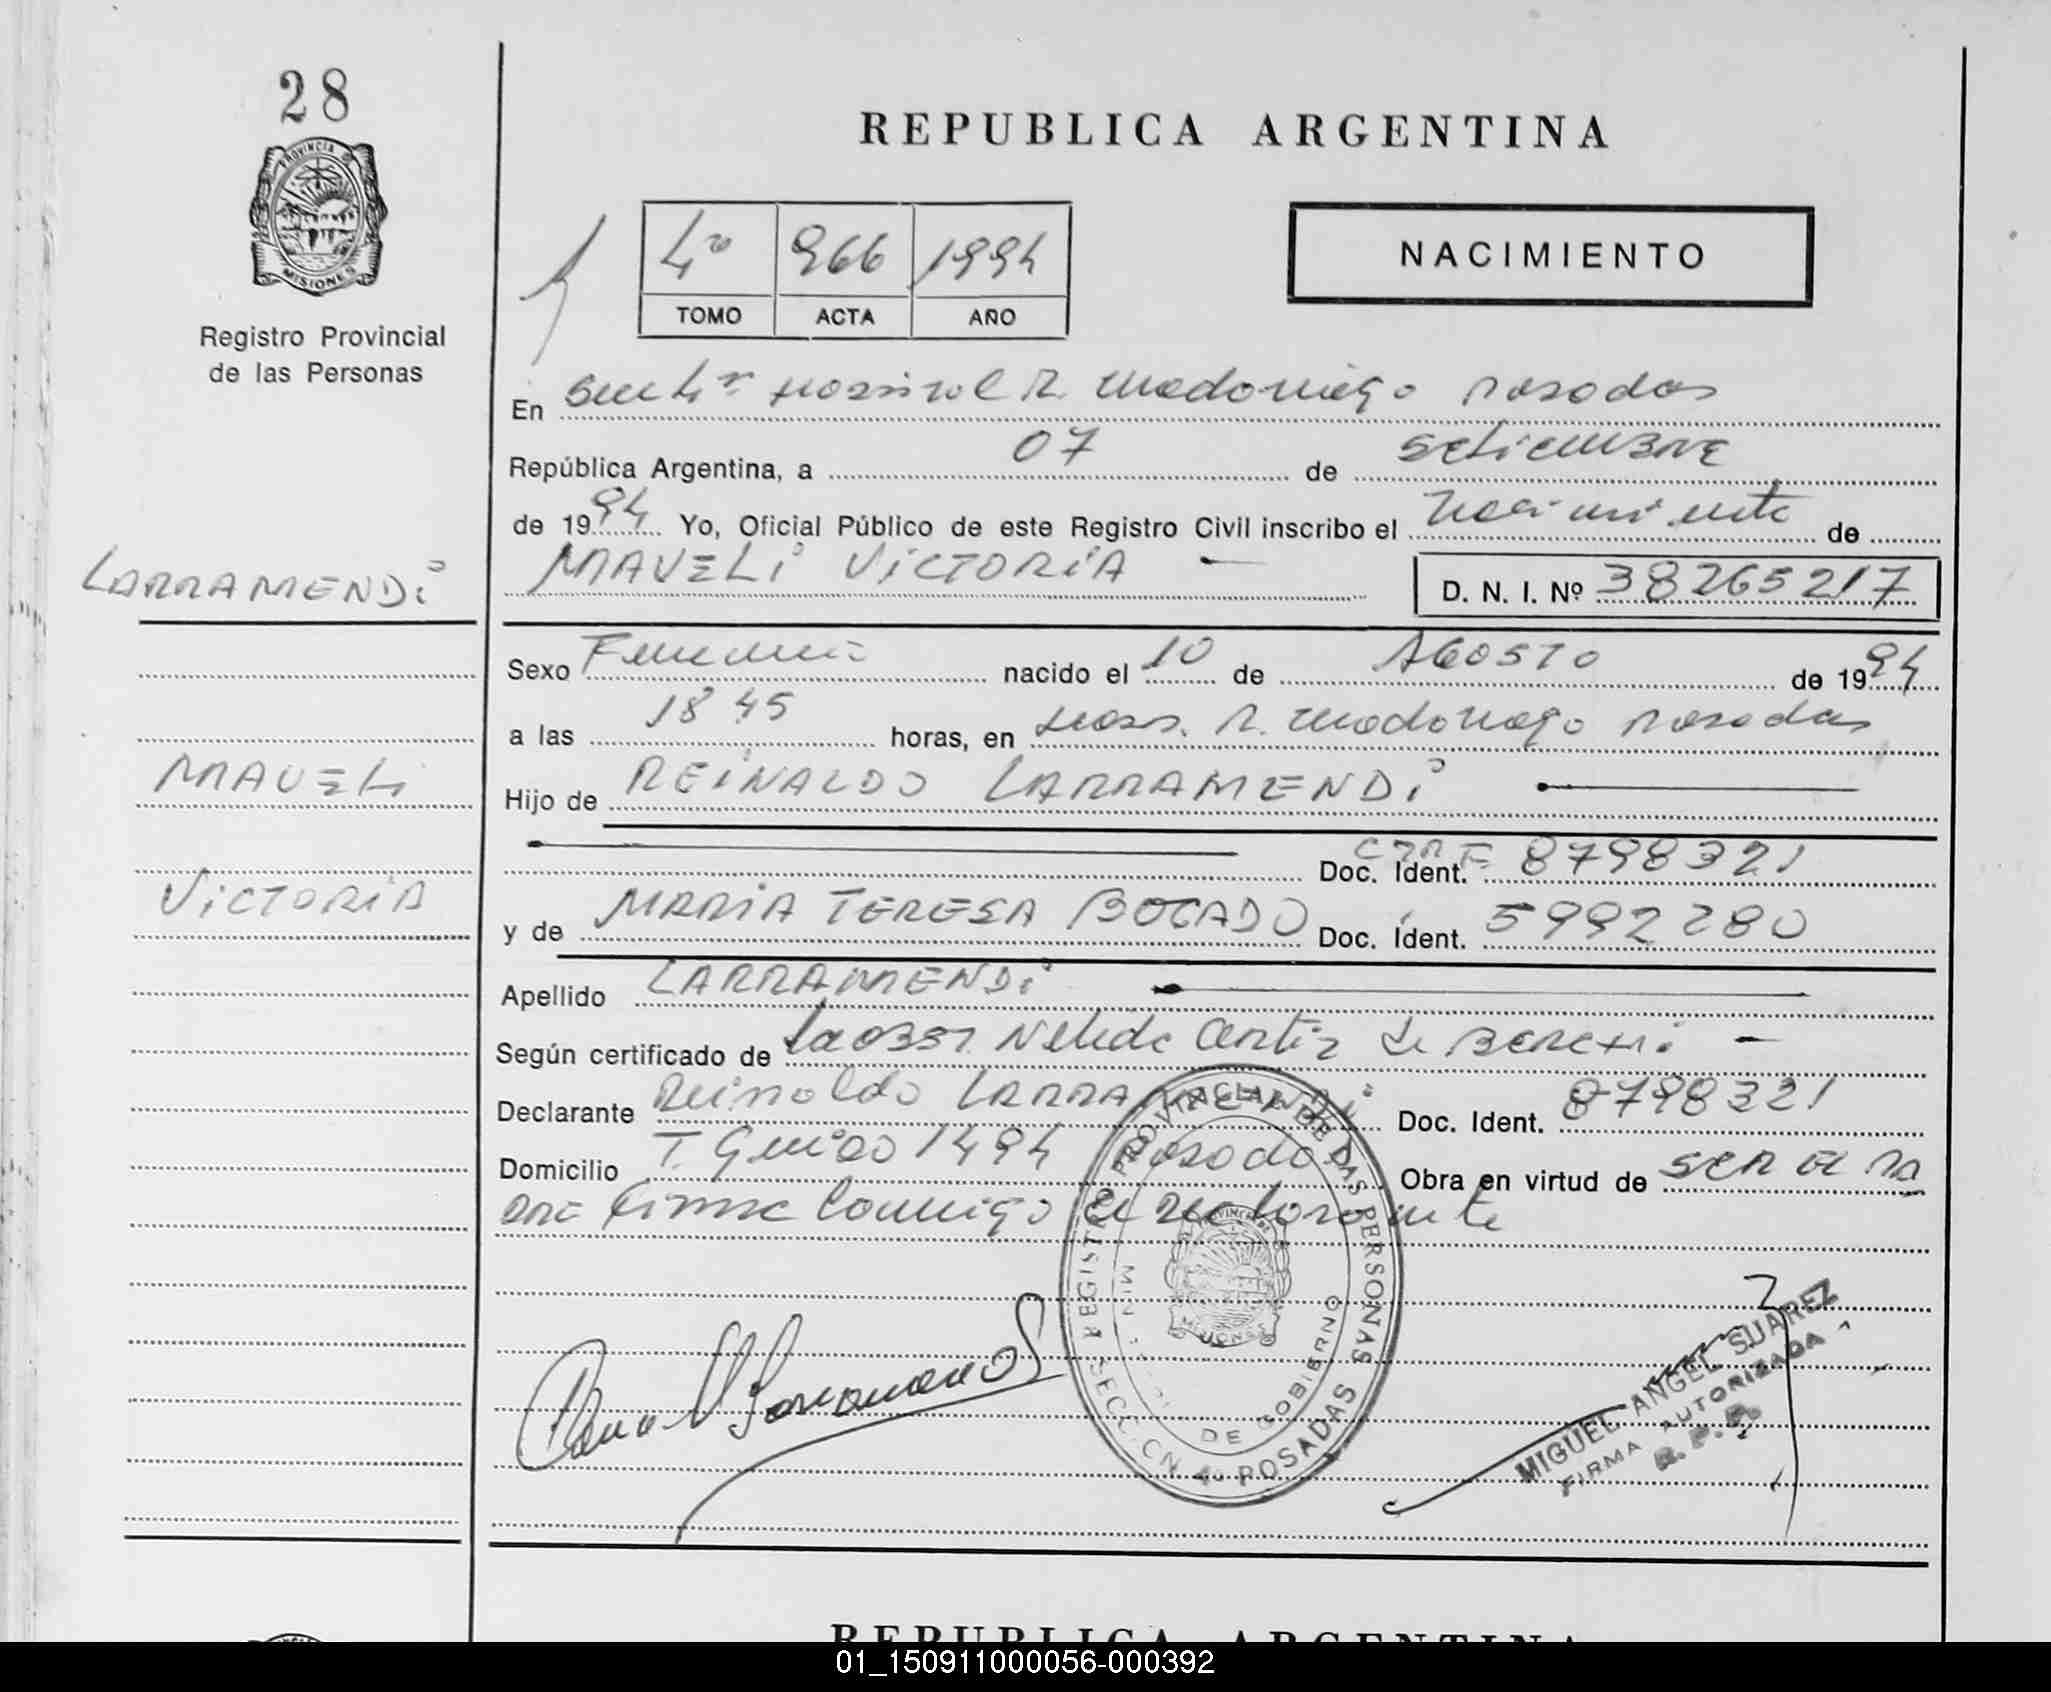 28
PROVINCIA DE
MISIONES
Registro Provincial
de las Personas
LARRAMENDi
MAVELi
VICTORIA
REPUBLICA ARGENTINA
NACIMIENTO
4º 966 1994
TOMO ACTA AÑO
En Secc 4ª Hospital R. Madariaga Posadas
República Argentina, a 07 de Setiembre
de 1994 Yo, Oficial Público de este Registro Civil inscribo el Nacimiento de
MAVELi VICTORIA —
D. N. I. Nº 38265217
Sexo Femenino nacido el 10 de AGOSTO de 1994
a las 18 45 horas, en Hosp. R. Madariaga Posadas
Hijo de REINALDO LARRAMENDi
Doc. Ident. 8798321
y de MARIA TERESA BOGADO Doc. Ident. 5992280
Apellido LARRAMENDi
Según certificado de Nelida de —
Declarante Reinaldo LARRAMENDi Doc. Ident. 8798321
Domicilio 1494 Posadas Obra en virtud de SER EL PA
DRE firma conmigo el declarante
REGISTRO PROVINCIAL DE LAS PERSONAS
DE GOBIERNO
PROVINCIA DE
MISIONES
SECCION 4ª POSADAS
MIGUEL ANGEL SUAREZ
FIRMA AUTORIZADA
R. P. P.
REPUBLICA ARGENTINA
01_150911000056-000392